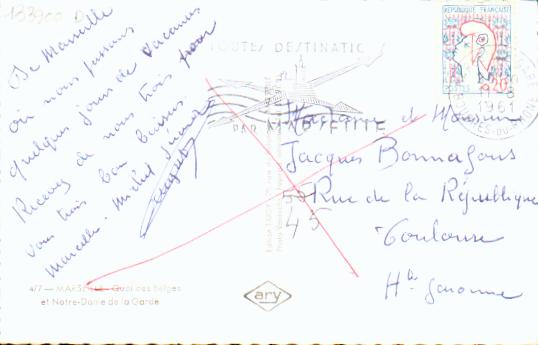 133900
De Marseille
où nous passons
quelques jours de vacances
Recevez de nous trois pour
vous trois bons baisers
Marcelle. Michel
4/7 — MARSEILLE - Quai des Belges
et Notre-Dame de la Garde
TOUTES DESTINATIONS
PAR MARSEILLE
RÉPUBLIQUE FRANÇAISE
0,20
1961
BOUCHES-DU-RHONE
Madame et Monsieur
Jacques Bonnafous
45 Rue de la République
Toulouse
Hte Garonne
ary